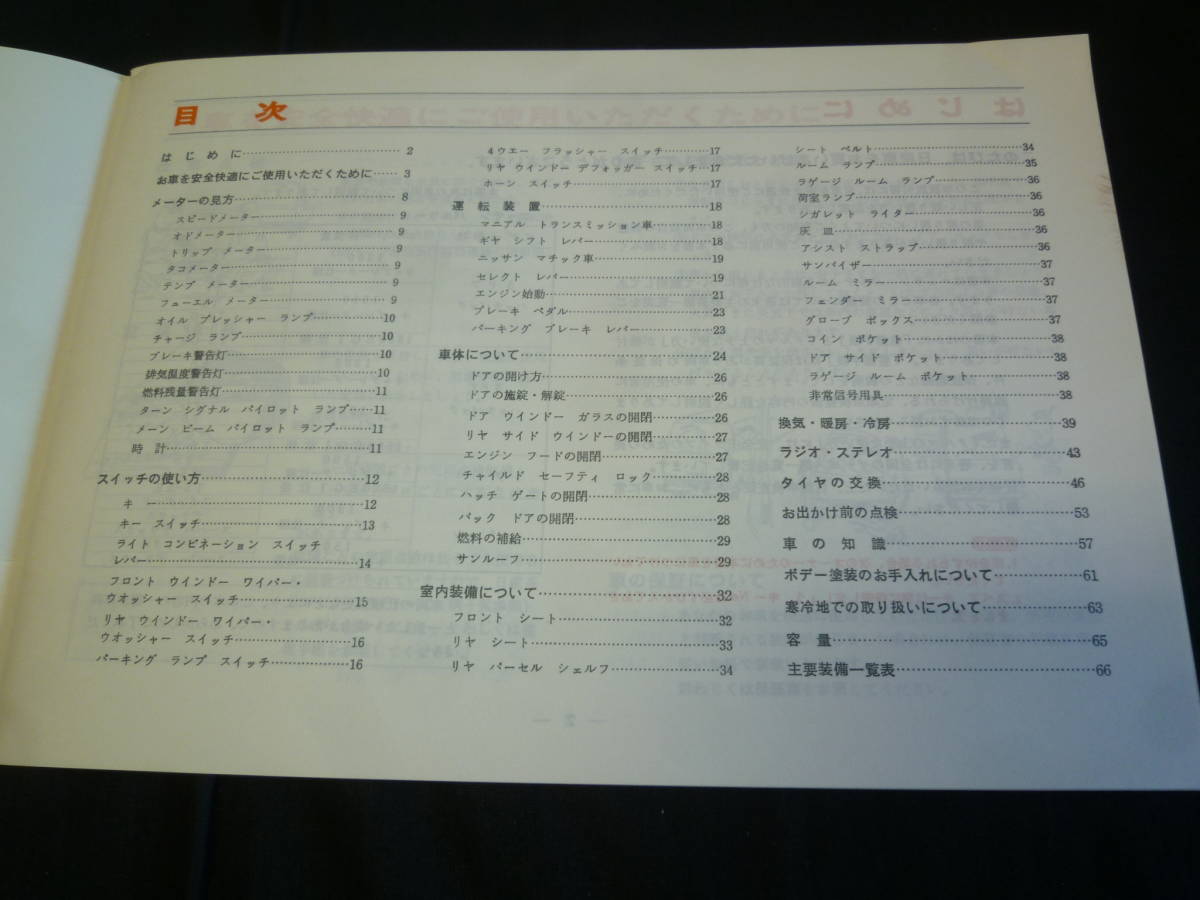 目 次
はじめに……2
お車を安全快適にご使用いただくために……3
メーターの見方……8
スピードメーター……9
オドメーター……9
トリップ メーター……9
タコメーター……9
テンプ メーター……9
フューエル メーター……9
オイル プレッシャー ランプ……10
チャージ ランプ……10
ブレーキ警告灯……10
排気温度警告灯……10
燃料残量警告灯……11
ターン シグナル パイロット ランプ……11
メーン ビーム パイロット ランプ……11
時計……11
スイッチの使い方……12
キー……12
キー スイッチ……13
ライト コンビネーション スイッチ
レバー……14
フロント ウインドー ワイパー・
ウオッシャー スイッチ……15
リヤ ウインドー ワイパー・
ウオッシャー スイッチ……16
パーキング ランプ スイッチ……16
4ウエー フラッシャー スイッチ……17
リヤ ウインドー デフォッガー スイッチ……17
ホーン スイッチ……17
運転装置……18
マニアル トランスミッション車……18
ギヤ シフト レバー……18
ニッサン マチック車……19
セレクト レバー……19
エンジン始動……21
ブレーキ ペダル……23
パーキング ブレーキ レバー……23
車体について……24
ドアの開け方……26
ドアの施錠・解錠……26
ドア ウインドー ガラスの開閉……26
リヤ サイド ウインドーの開閉……27
エンジン フードの開閉……27
チャイルド セーフティ ロック……28
ハッチ ゲートの開閉……28
バック ドアの開閉……28
燃料の補給……29
サンルーフ……29
室内装備について……32
フロント シート……32
リヤ シート……33
リヤ パーセル シェルフ……34
シート ベルト……34
ルーム ランプ……35
ラゲージ ルーム ランプ……36
荷室ランプ……36
シガレット ライター……36
灰皿……36
アシスト ストラップ……36
サンバイザー……37
ルーム ミラー……37
フェンダー ミラー……37
グローブ ボックス……37
コイン ポケット……38
ドア サイド ポケット……38
ラゲージ ルーム ポケット……38
非常信号用具……38
換気・暖房・冷房……39
ラジオ・ステレオ……43
タイヤの交換……46
お出かけ前の点検……53
車の知識……57
ボデー塗装のお手入れについて……61
寒冷地での取り扱いについて……63
容量……65
主要装備一覧表……66